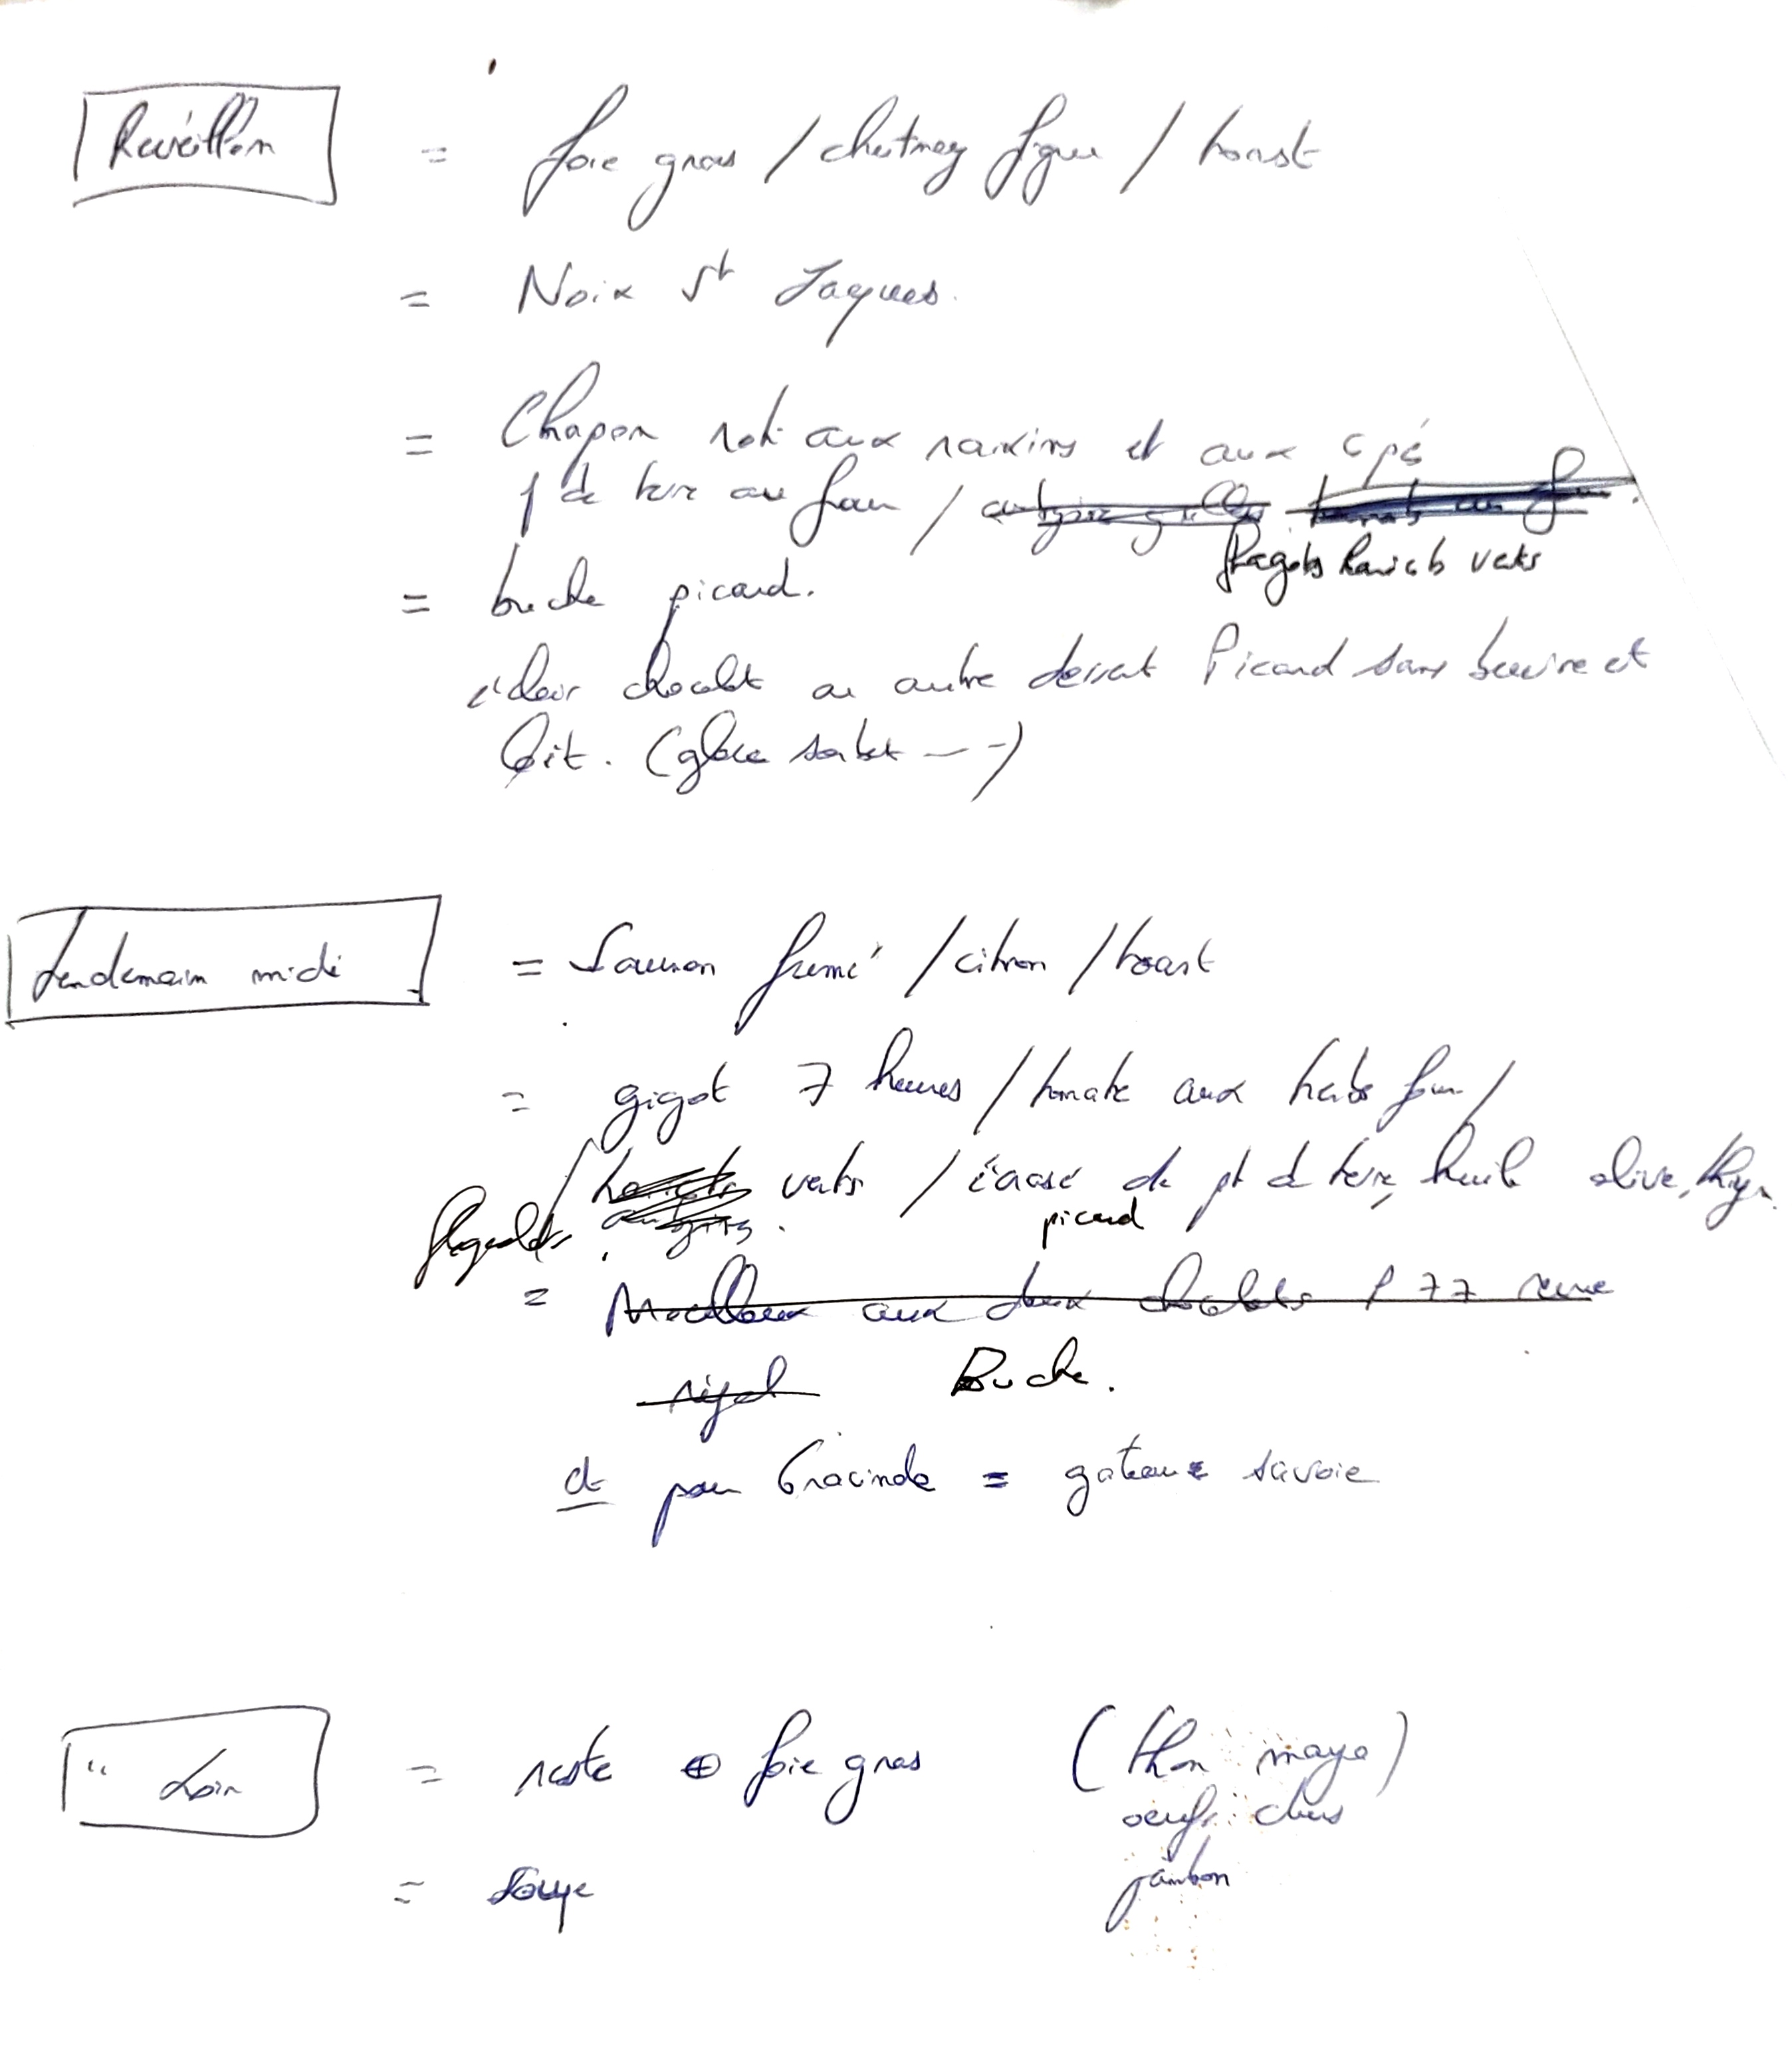 Réveillon = foie gras / chutney figue / toast
= Noix St Jaques.
= Chapon roti aux raisins et aux cpé
p de terre au four /
fagots haricots verts
= buche picard.
éclair chocolat ou autre dessert Picard sans beurre et
lait. (glace sorbet --)
Lendemain midi = Saumon fumé / citron / toast
= gigot 7 heures / tomate aux herbes four /
fagots haricots verts / écrasé de pt de terre, huile olive, thym
picard
= Moelleux aux deux chocolats p 77
Buche.
et pour Gracinda = gateau savoie
" Soir = reste ⊕ foie gras (thon mayo)
oeufs durs
= soupe jambon